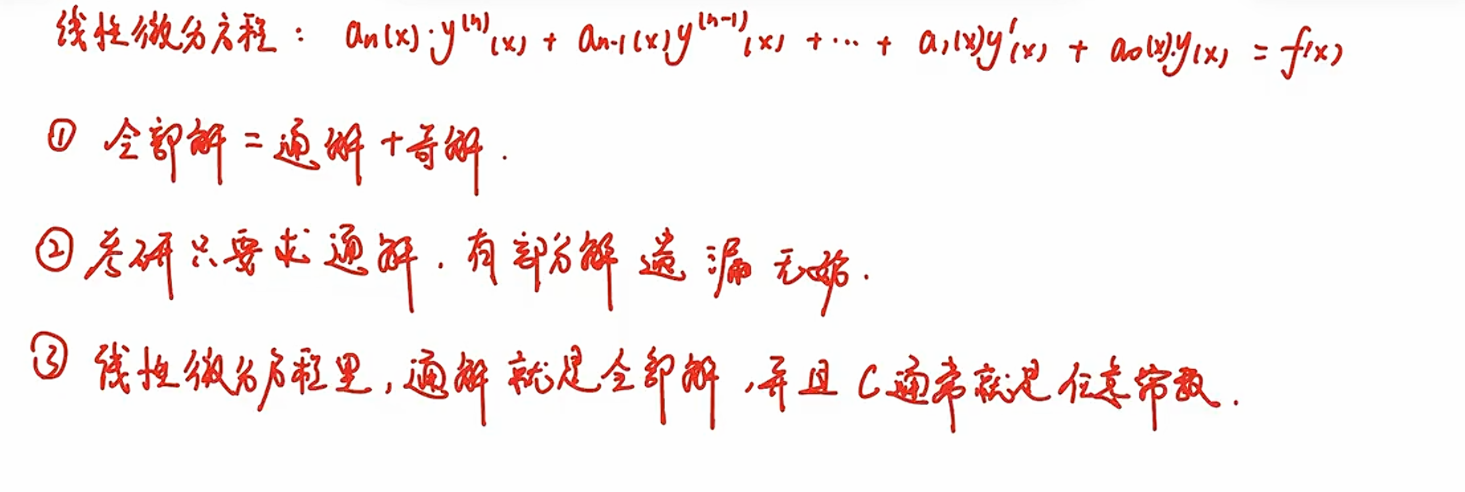 线性微分方程： aₙ(x)·y⁽ⁿ⁾(x) + aₙ₋₁(x)y⁽ⁿ⁻¹⁾(x) + ⋯ + a₁(x)y′(x) + a₀(x)·y(x) = f(x)
① 全部解 = 通解 + 奇解.
② 考研只要求通解. 有部分解遗漏无妨.
③ 线性微分方程里, 通解就是全部解, 并且 C 通常就是任意常数.